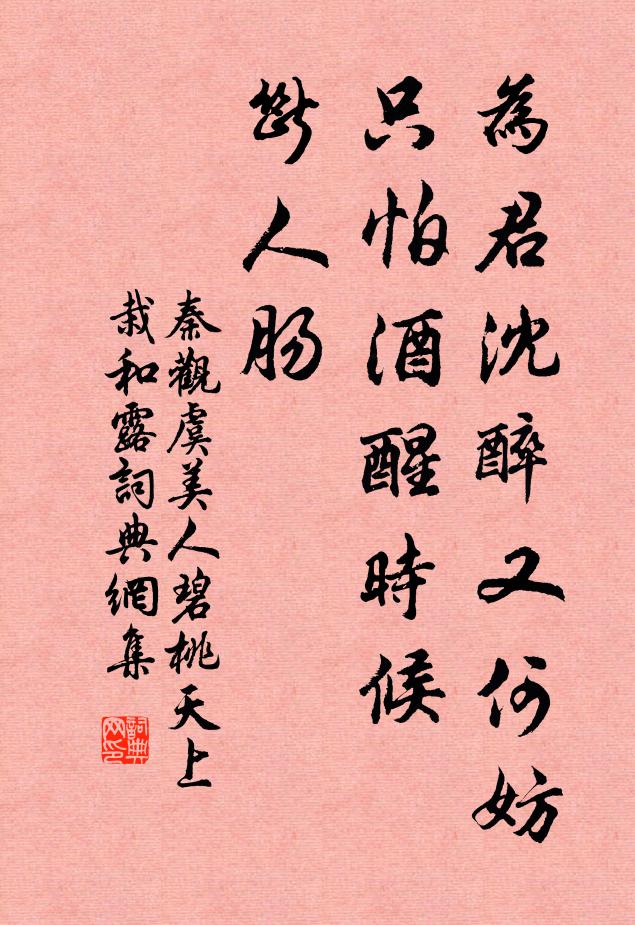 為君沈醉又何妨
只怕酒醒時候
斷人肠
秦觀虞美人碧桃天上
栽和露詞典網集
詞典网印